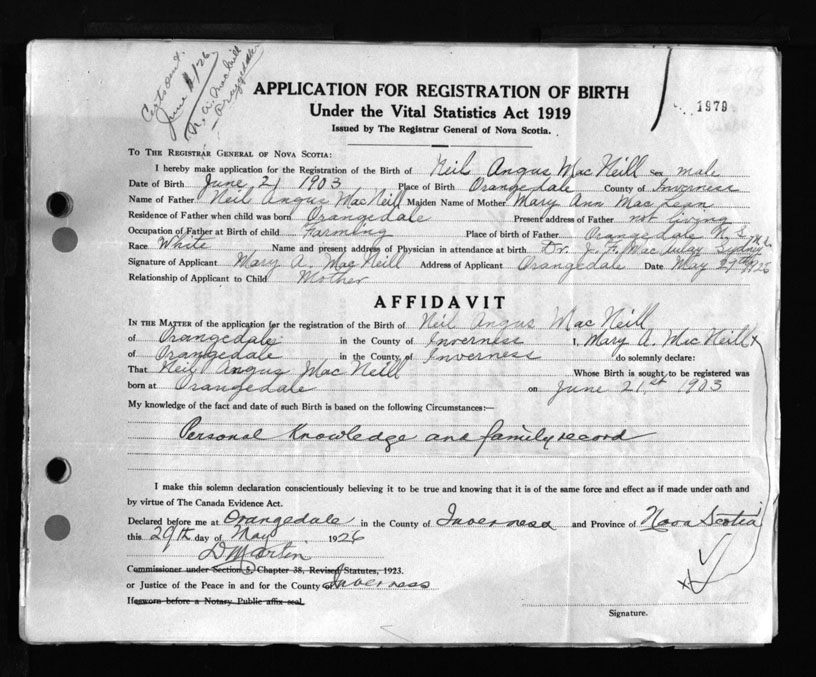 Cert sent.
June 8/26
N. A. MacNeill
Orangedale
APPLICATION FOR REGISTRATION OF BIRTH
Under the Vital Statistics Act 1919
Issued by The Registrar General of Nova Scotia.
1979
TO THE REGISTRAR GENERAL OF NOVA SCOTIA:
I hereby make application for the Registration of the Birth of Neil Angus MacNeill sex male
Date of Birth June 21 1903 Place of Birth Orangedale County of Inverness
Name of Father Neil Angus MacNeill Maiden Name of Mother Mary Ann MacLean
Residence of Father when child was born Orangedale Present address of Father not living
Occupation of Father at Birth of child Farming Place of birth of Father Orangedale N.S.
Race White Name and present address of Physician in attendance at birth Dr. J. F. MacAulay Sydney N.S.
Signature of Applicant Mary A. MacNeill Address of Applicant Orangedale Date May 29th 1926
Relationship of Applicant to Child Mother
AFFIDAVIT
IN THE MATTER of the application for the registration of the Birth of Neil Angus MacNeill
of Orangedale in the County of Inverness I, Mary A. MacNeill x
of Orangedale in the County of Inverness do solemnly declare:
That Neil Angus MacNeill Whose Birth is sought to be registered was
born at Orangedale on June 21st 1903
My knowledge of the fact and date of such Birth is based on the following Circumstances:—
Personal Knowledge and family record
I make this solemn declaration conscientiously believing it to be true and knowing that it is of the same force and effect as if made under oath and
by virtue of The Canada Evidence Act.
Declared before me at Orangedale in the County of Inverness and Province of Nova Scotia
this 29th day of May 1926
D Martin
Commissioner under Section 5, Chapter 38, Revised Statutes, 1923.
or Justice of the Peace in and for the County of Inverness
If sworn before a Notary Public affix seal.
x
Signature.